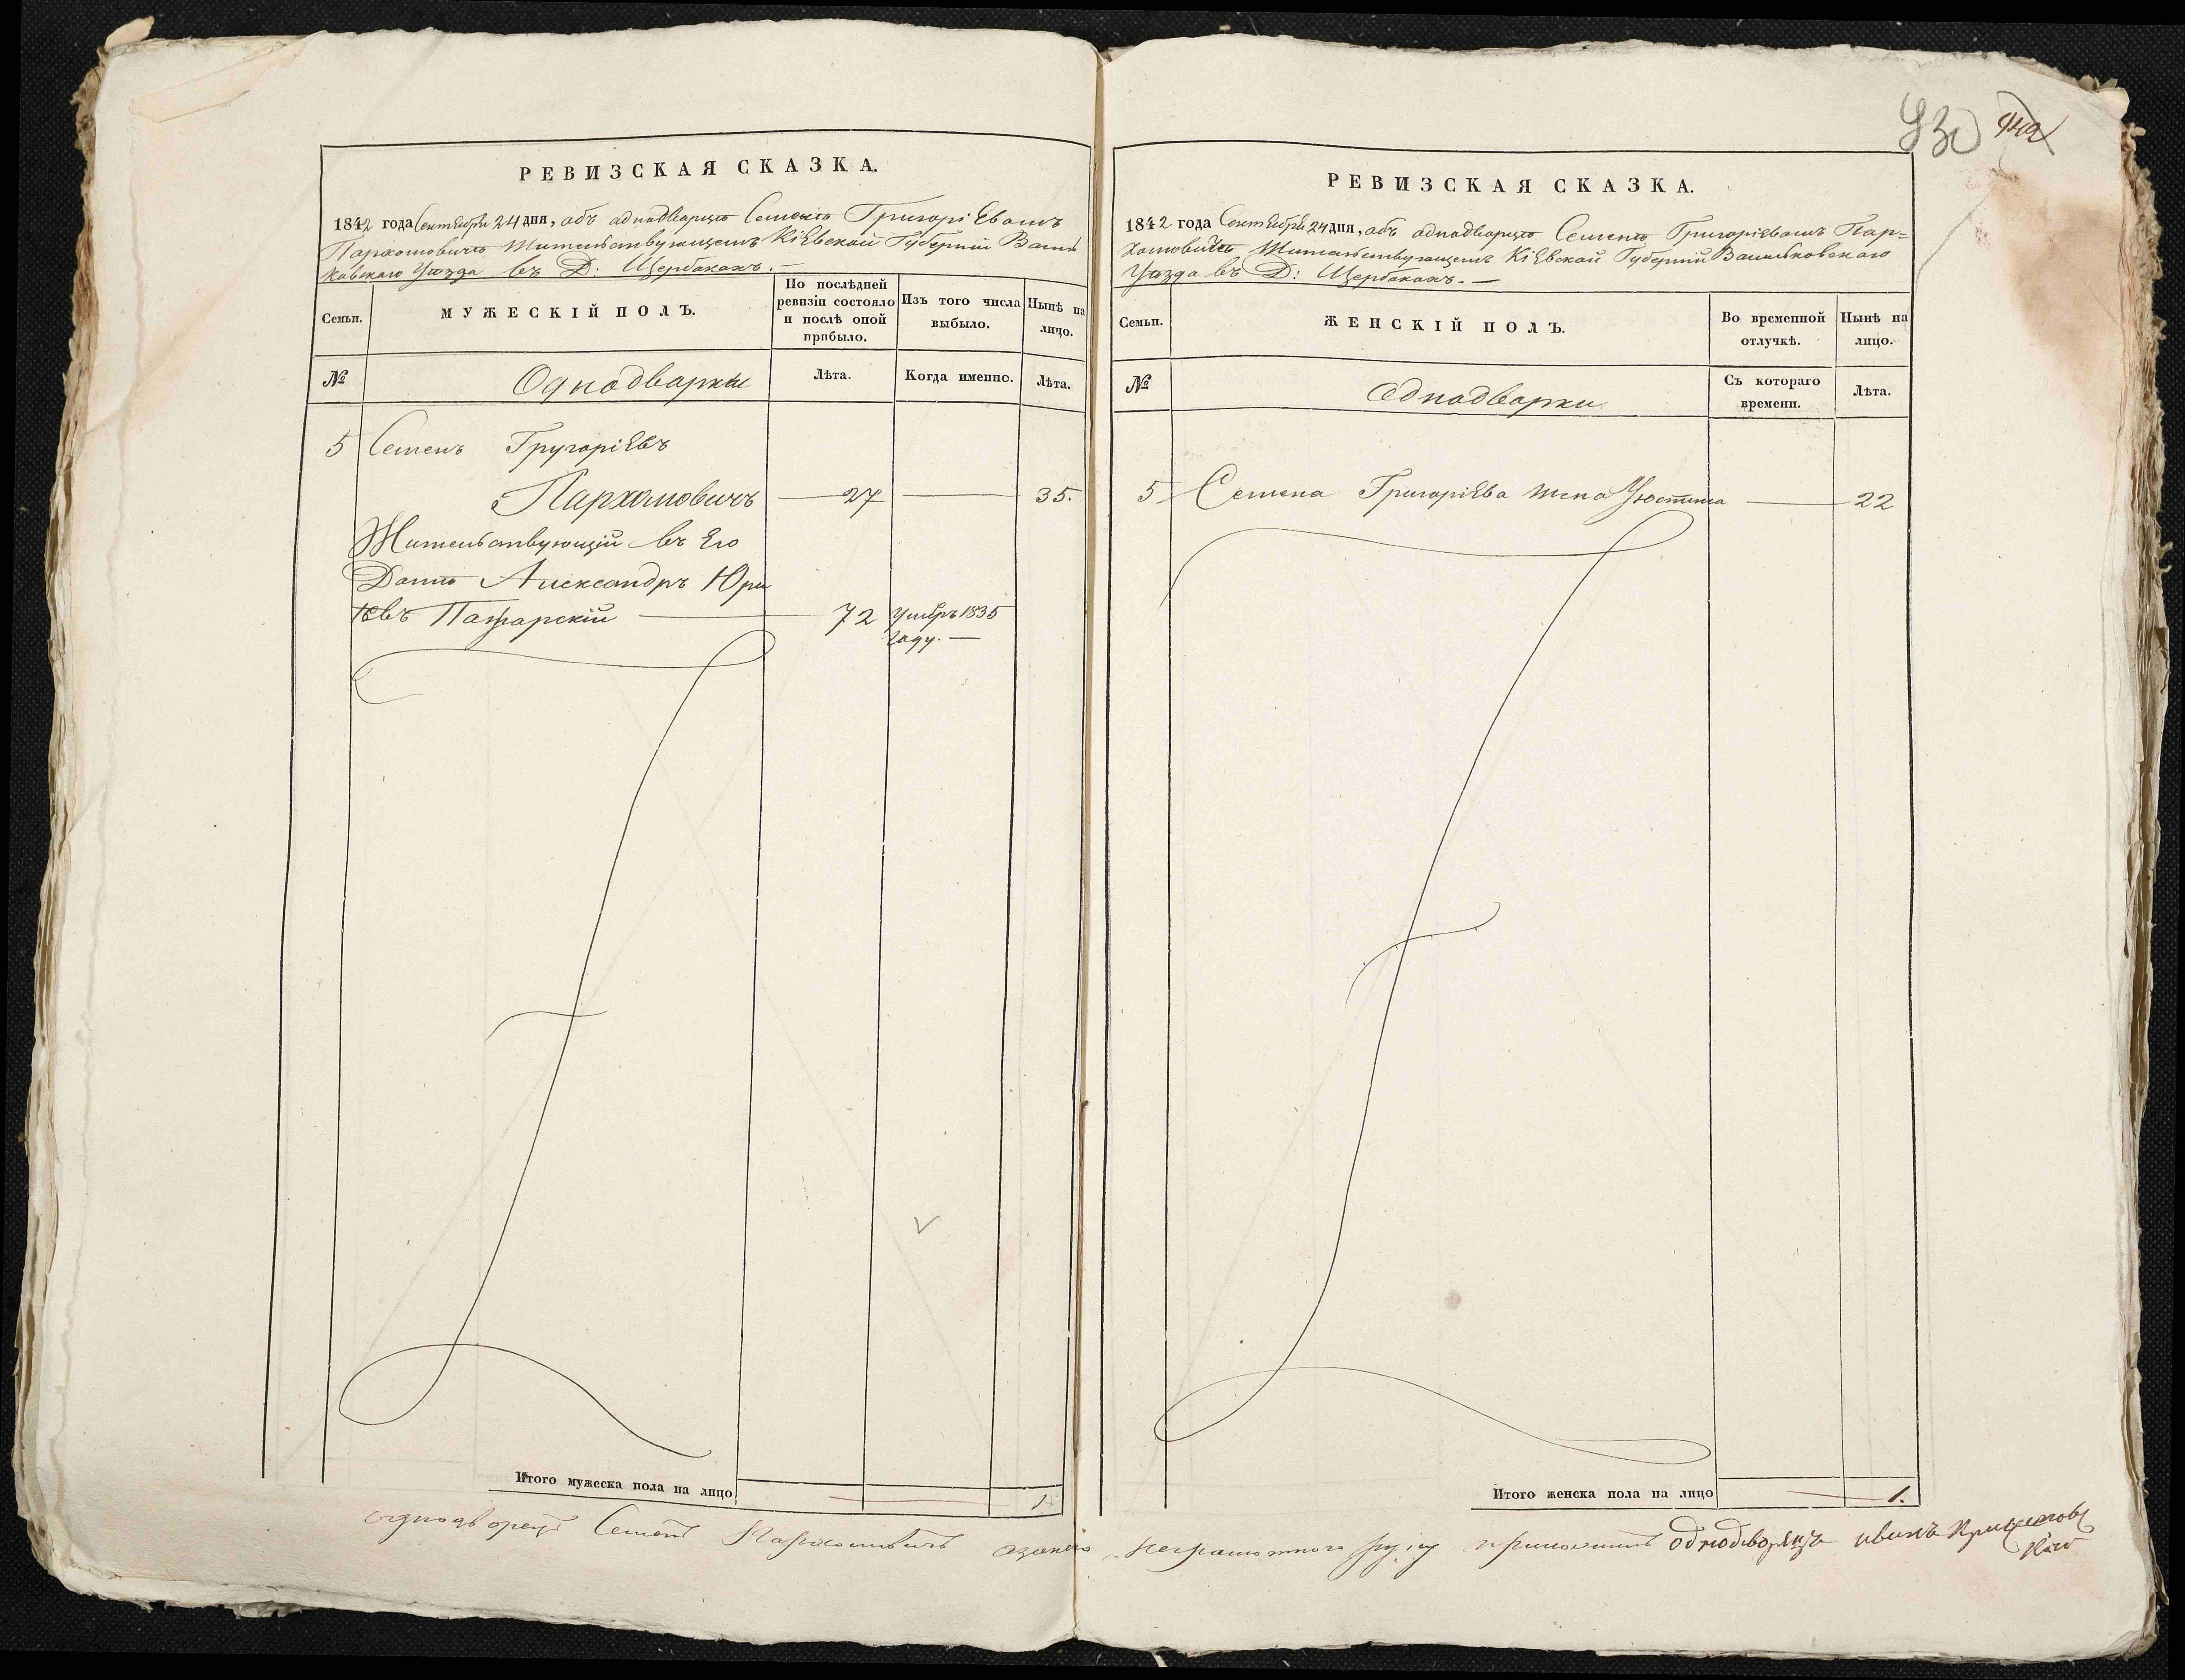 РЕВИЗСКАЯ СКАЗКА.
1842 года Сентября 24 дня, объ однодворцѣ Семенѣ Григоріевомъ
Пархомовичѣ Жительствующемъ Кіевской Губерніи Василь
ковскаго Уѣзда въ Д: Щербакахъ. —
Семьи.
МУЖЕСКІЙ ПОЛЪ.
По послѣдней
ревизіи состояло
и послѣ оной
прибыло.
Изъ того числа
выбыло.
Нынѣ на
лицо.
№
Однодворцы
Лѣта.
Когда именно.
Лѣта.
5 Семенъ Григоріевъ
Пархомовичъ — 27 — 35.
Жительствующій въ Его
Домѣ Александръ Юрі
евъ — 72 Умеръ 1835
году. —
Итого мужеска пола на лицо 1
РЕВИЗСКАЯ СКАЗКА.
1842 года Сентября 24 дня, объ однодворцѣ Семенѣ Григоріевомъ Пар=
хомовичѣ Жительствующемъ Кіевской Губерніи Васильковскаго
Уѣзда въ Д: Щербакахъ. —
Семьи.
ЖЕНСКІЙ ПОЛЪ.
Во временной
отлучкѣ.
Нынѣ на
лицо.
№
Однодворки
Съ котораго
времени.
Лѣта.
5 Семена Григоріева жена Юстина — 22
Итого женска пола на лицо 1.
однодворецъ Семенъ Пархомовичъ неграмотного руку приложилъ однодворецъ иванъ